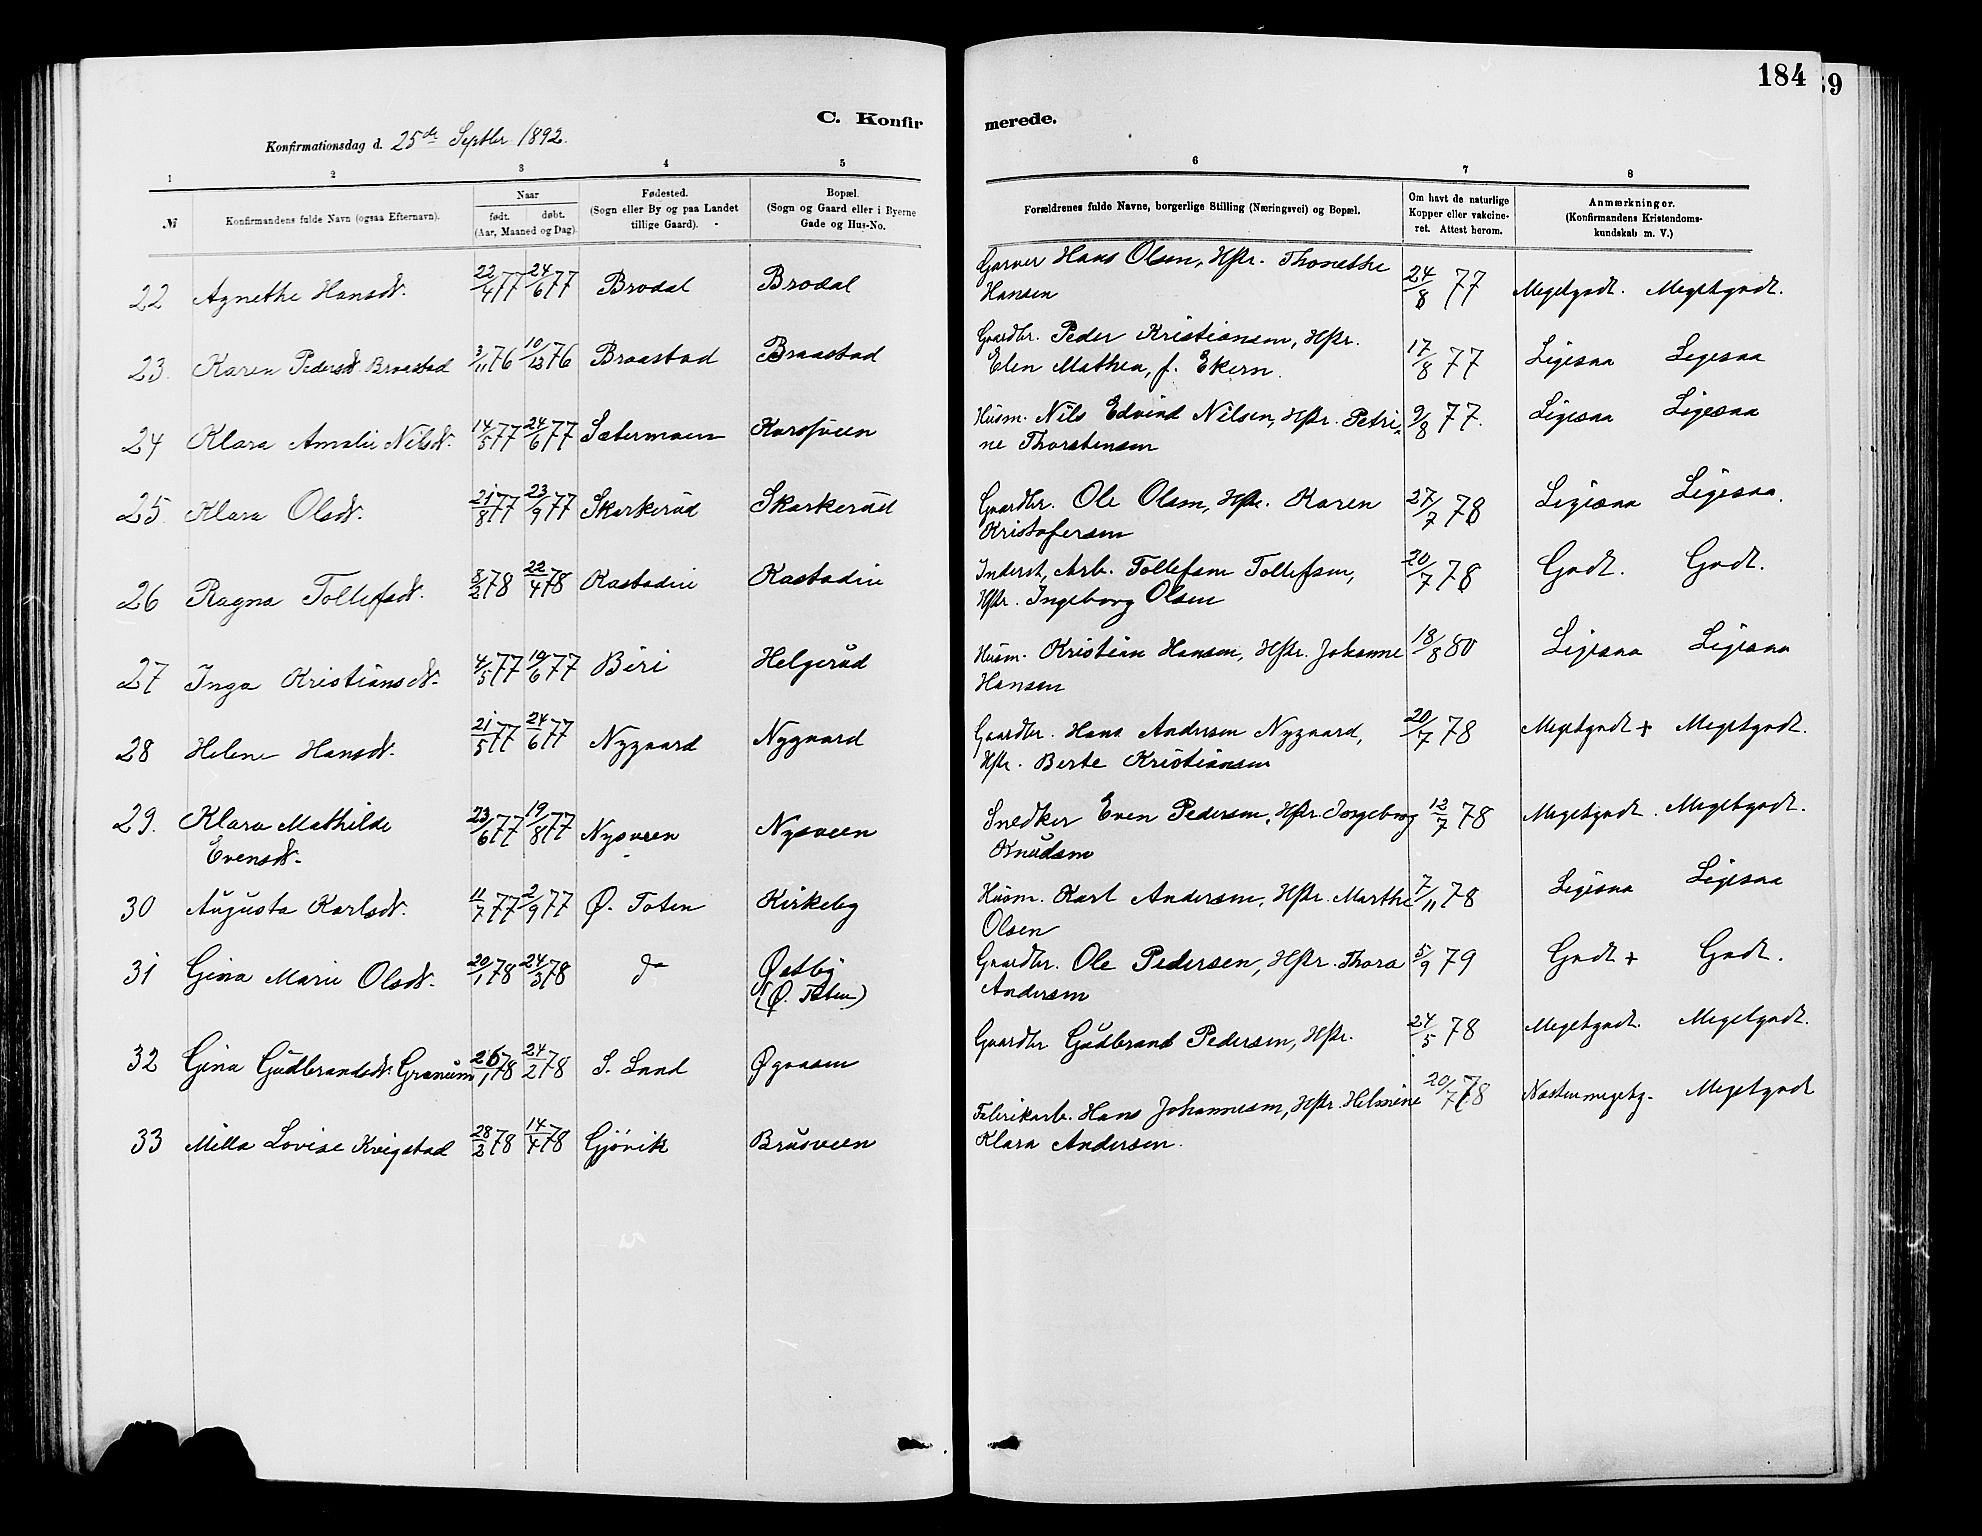 184
39
C. Konfir
merede.
Konfirmationsdag d. 25de Septbr 1892.
1 2 3 4 5 6 7 8
№ Konfirmandens fulde Navn (ogsaa Efternavn). Naar født. døbt. (Aar, Maaned og Dag). Fødested. (Sogn eller By og paa Landet tillige Gaard). Bopæl. (Sogn og Gaard eller i Byerne Gade og Hus-No.
Forældrenes fulde Navne, borgerlige Stilling (Næringsvei) og Bopæl. Om havt de naturlige Kopper eller vakcineret. Attest herom. Anmærkninger. (Konfirmandens Kristendomskundskab m. V.)
22 Agnethe Hansdt. 22/4 77 24/6 77 Brodal Brodal Garver Hans Olsen, Hstr. Thonethe 24/8 77 Megetgodt. Megetgodt.
Hansen
23. Karen Pedersdt. Braastad 3/11 76 10/12 76 Braastad Braastad Gaardbr. Peder Kristiansen, Hstr. 17/8 77 Ligesaa Ligesaa
Elen Mathea, f. Ekern.
24 Klara Amalie Nilsdt. 14/5 77 24/6 77 Sætermoen Korsfveen Husm. Nils Edvind Nilsen, Hstr. Petri- 9/8 77. Ligesaa Ligesaa
ne Thorstensen
25. Klara Olsdt. 21/8 77 23/9 77 Skarkerud Skarkerud Gaardbr. Ole Olsen, Hstr. Karen 27/7 78 Ligesaa Ligesaa.
Kristofersen
26 Ragna Tollefsdt. 8/2 78 22/4 78 Kastadie Kastadie Inderst, Arb. Tollefsen Tollefsen, 20/7 78 Godt. Godt.
Hstr. Ingeborg Olsen
27 Inga Kristiansdt. 4/5 77 10/6 77 Biri Helgerud Husm. Kristian Hansen, Hstr. Johanne 18/8 80 Ligesaa Ligesaa
Hansen
28 Helene Hansdt. 21/5 77 24/6 77 Nygaard Nygaard Gaardbr. Hans Andersen Nygaard, 20/7 78 Megetgodt + Megetgodt.
Hstr. Berte Kristiansen
29. Klara Mathilde 23/6 77 19/8 77 Nysveen Nysveen Snedker Even Pedersen, Hstr. Ingeborg 12/7 78 Megetgodt. Megetgodt.
Evensdt. Knudsen
30 Augusta Karlsdt. 11/7 77 2/9 77 Ø. Toten Kirkeby Husm. Karl Andersen, Hstr. Marthe 7/11 78 Ligesaa Ligesaa
Olsen
31 Gina Marie Olsdt. 20/1 78 24/3 78 do Østby Gaardbr. Ole Pedersen, Hstr. Thora 5/9 79 Godt + Godt.
(Ø. Toten) Andersen
32 Gina Gudbrandsdt. Granum 26/1 78 24/2 78 S. Land Øgaasen Gaardbr Gudbrand Pedersen, Hstr. 24/5 78 Megetgodt. Megetgodt.
33 Milla Lovise Kvigstad 28/2 78 14/4 78 Gjøvik Brusveen Fabrikarb. Hans Johannesen, Hstr. 20/7 78 Næstenmegetg. Megetgodt
Klara Andersen.